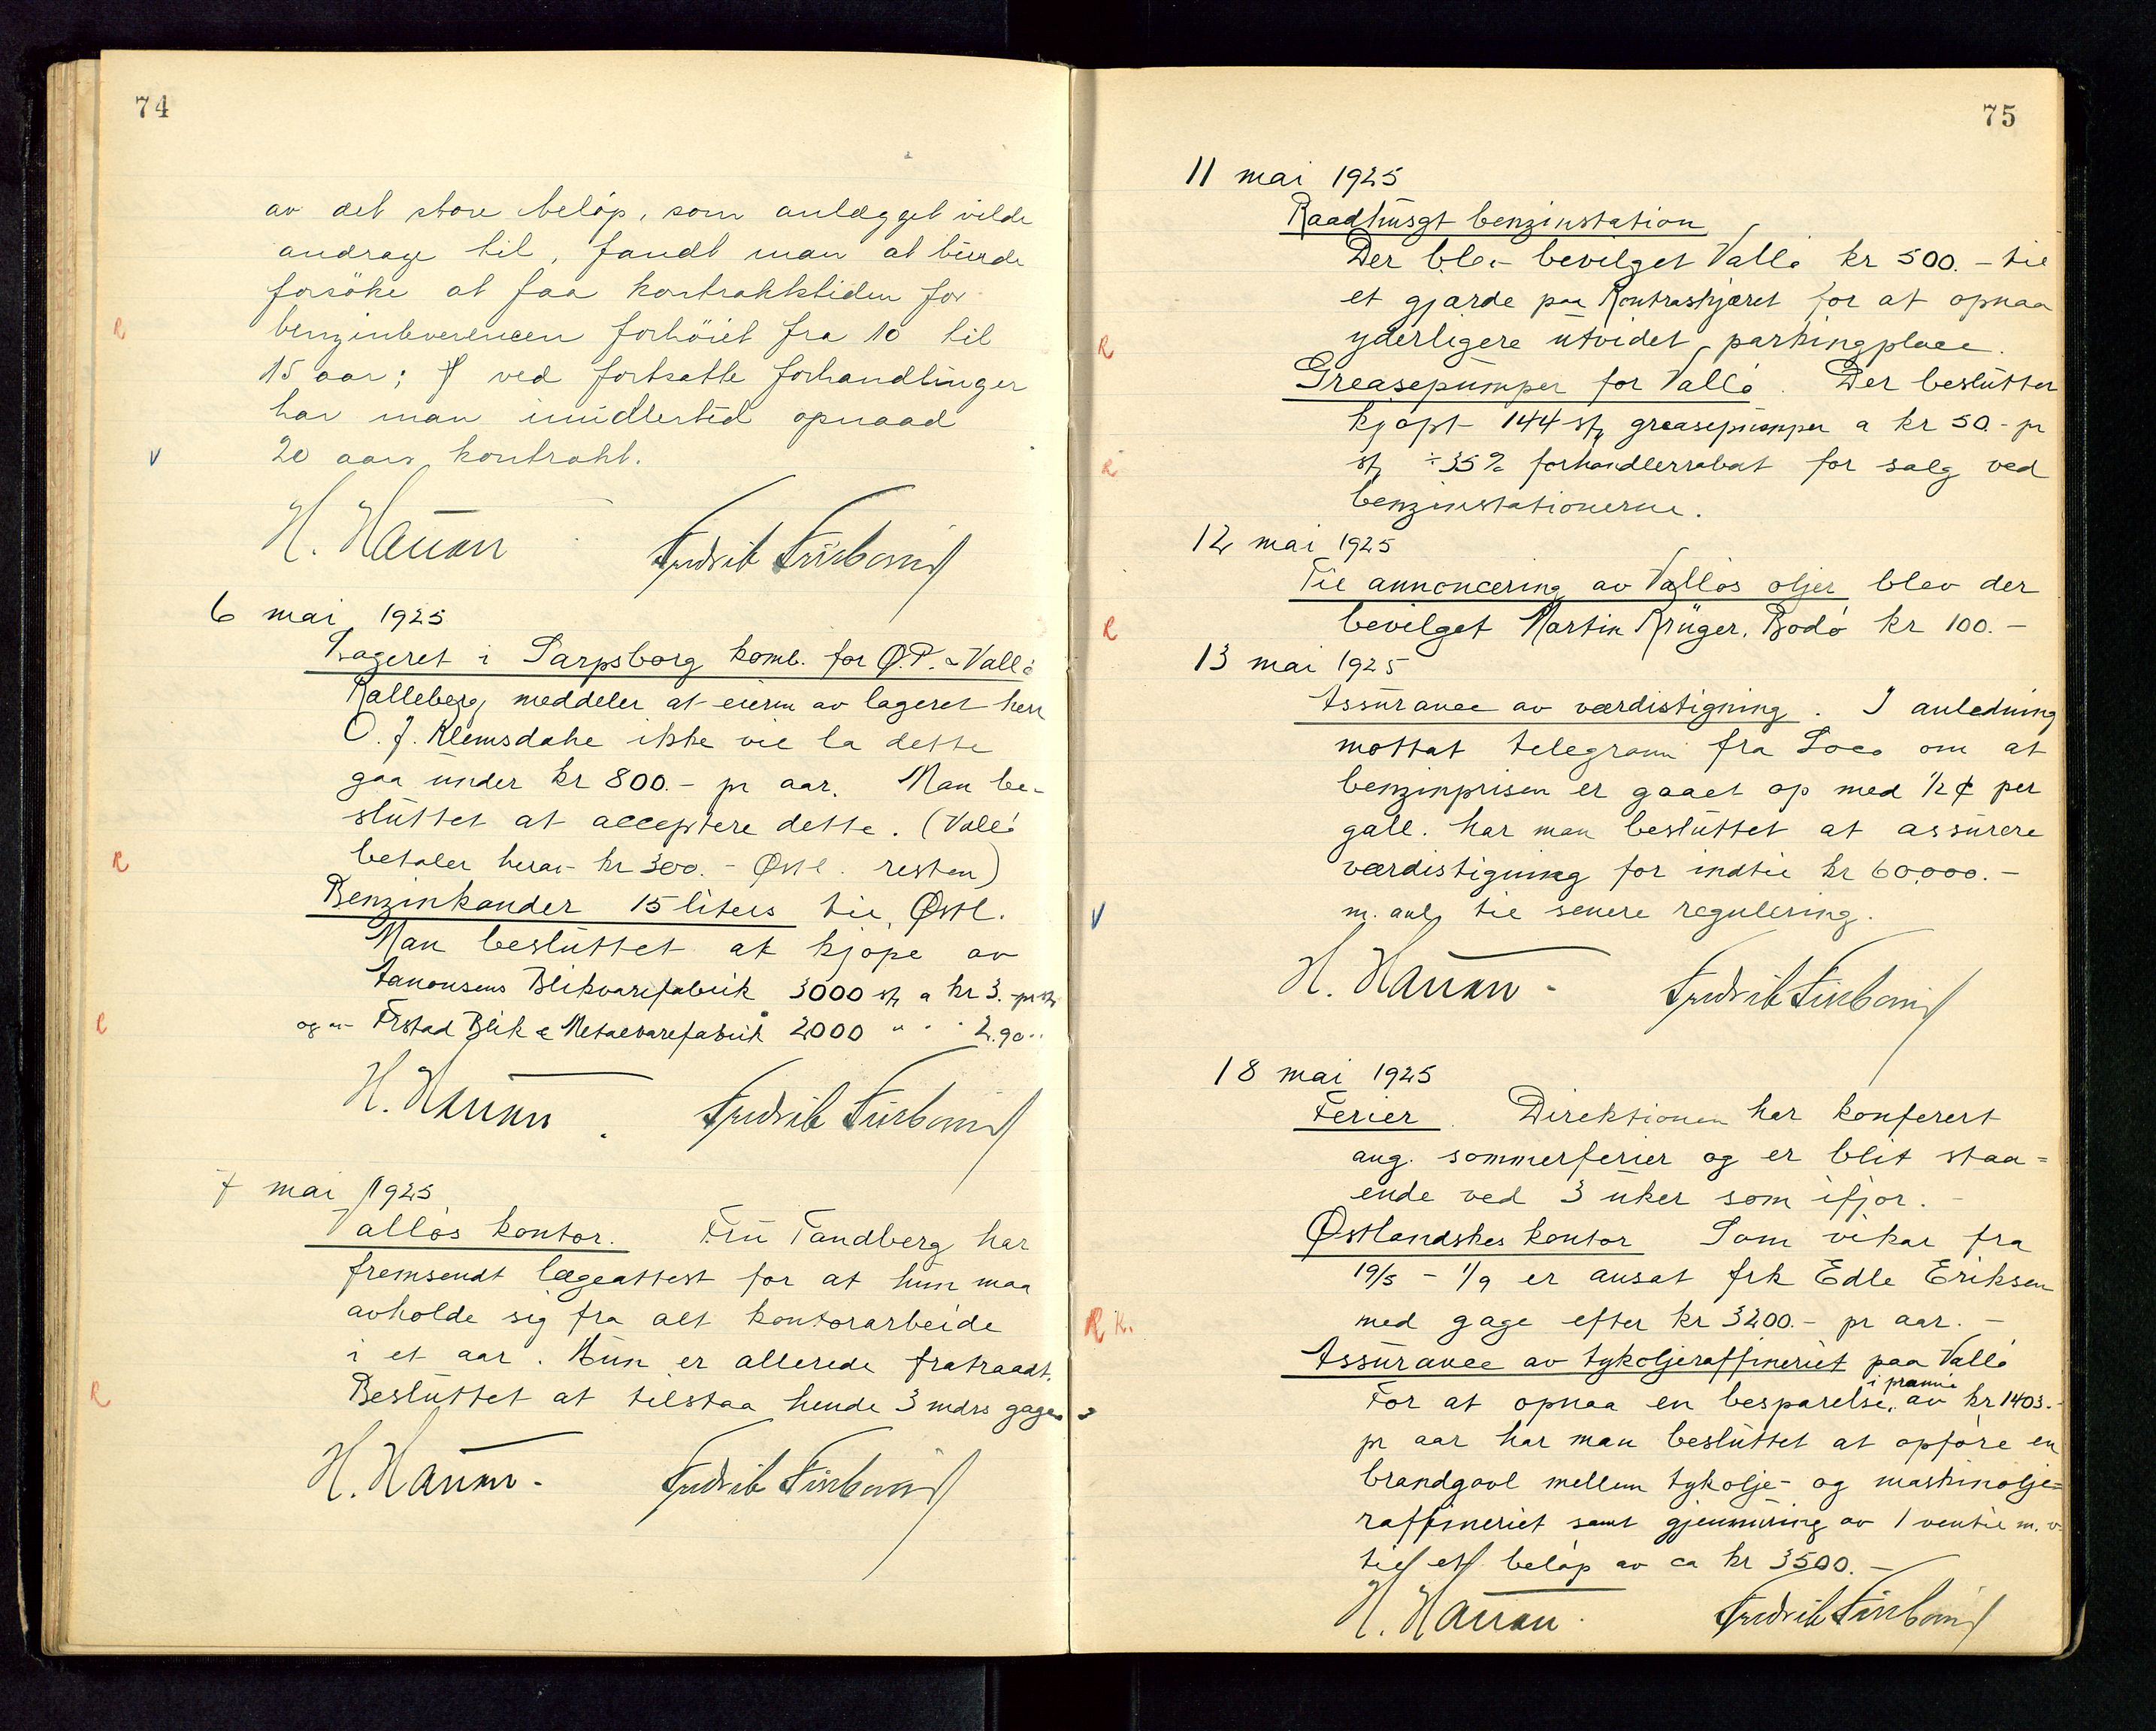 74
av det store beløp, som anlægget vilde
andrage til, fandt man at burde
forsöke at faa kontraktstiden for
benzinleverencen forhöiet fra 10 til
15 aar; ved fortsatte forhandlinger
har man imidlertid opnaad
20 aars kontrakt.
H. Hansen Fredrik
6 mai 1925
Lageret i Sarpsborg komb. for Ø.P. & Vallö
Kalleberg meddeler at eieren av lageret herr
O. J. Klemsdahl ikke vil la dette
gaa under kr 800.- pr aar. Man be-
sluttet at acceptere dette. (Vallö
betaler herav kr 300.- Østl. resten)
Benzinkander 15 liters til Østl.
Man besluttet at kjöpe av
Aanonsens Blikvarefabrik 3000 st. a kr 3.- pr st.
og av Ørstad Blik & Metalvarefabrik 2000 " " " 2.90 "
H. Hansen Fredrik
7 mai 1925
Vallös kontor. Fru Tandberg har
fremsendt lægeattest for at hun maa
avholde sig fra alt kontorarbeide
i et aar. Hun er allerede fratraadt.
Besluttet at tilstaa hende 3 mdrs gage.
H. Hansen Fredrik
75
11 mai 1925
Raadhusgt benzinstation
Der blev bevilget Vallö kr 500.- til
et gjærde paa Kontraskjæret for at opnaa
yderligere utvidet parkingplace.
Greasepumper for Vallö. Der beslutter
kjöpt 144 st. greasepumper a kr 50.- pr
st. ÷ 35% forhandlerrabat for salg ved
benzinstationerne.
12 mai 1925
Til annoncering av Vallös oljer blev der
bevilget Martin Krüger, Bodö kr 100.-
13 mai 1925
Assurance av værdistigning. I anledning
mottat telegram fra Soco om at
benzinprisen er gaaet op med ½ ¢ per
gall. har man besluttet at assurere
værdistigning for indtil kr 60.000.-
m. anl. til senere regulering.
H. Hansen Fredrik
18 mai 1925
Ferier. Direktionen har konferert
ang. sommerferier og er blit staa=
ende ved 3 uker som ifjor.-
Østlandskes kontor Som vikar fra
19/5 - 1/9 er ansat frk Edle Eriksen
med gage efter kr 3200.- pr aar.-
Assurance av tykoljeraffineriet paa Vallö
For at opnaa en besparelse i præmie av kr 1403.-
pr aar har man besluttet at opföre en
brandgavl mellem tykolje- og maskinolje=
raffineriet samt gjenmuring av 1 ventil m.v.
til et belöp av ca kr 3500.-
H. Hansen Fredrik